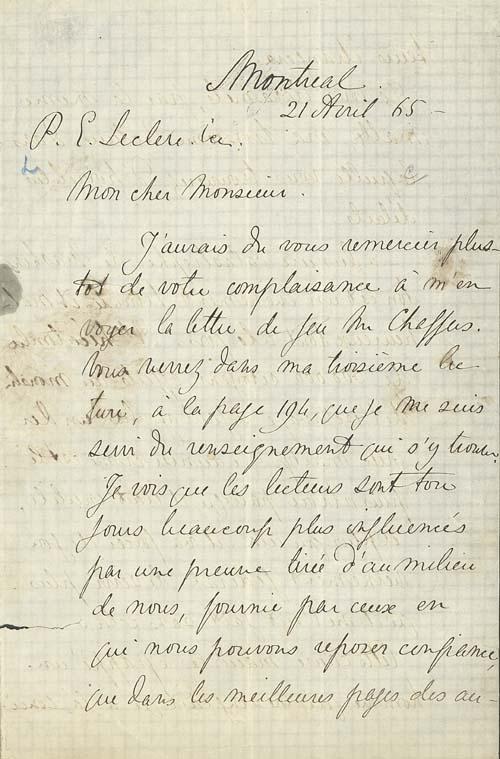 Montreal.
21 Avril 65 –
P. E. Leclerc
Mon cher Monsieur.
J'aurais du vous remercier plus-
tot de votre complaisance à m'en
voyer la lettre de feu Mr Chaffers.
Vous verrez dans ma troisième lec
ture, à la page 194, que je me suis
servi du renseignement qui s'y trouve.
Je vois que les lecteurs sont tou
jours beaucoup plus influencés
par une preuve tirée d'au milieu
de nous, fournie par ceux en
qui nous pouvons reposer confiance,
que dans les meilleures pages des au-